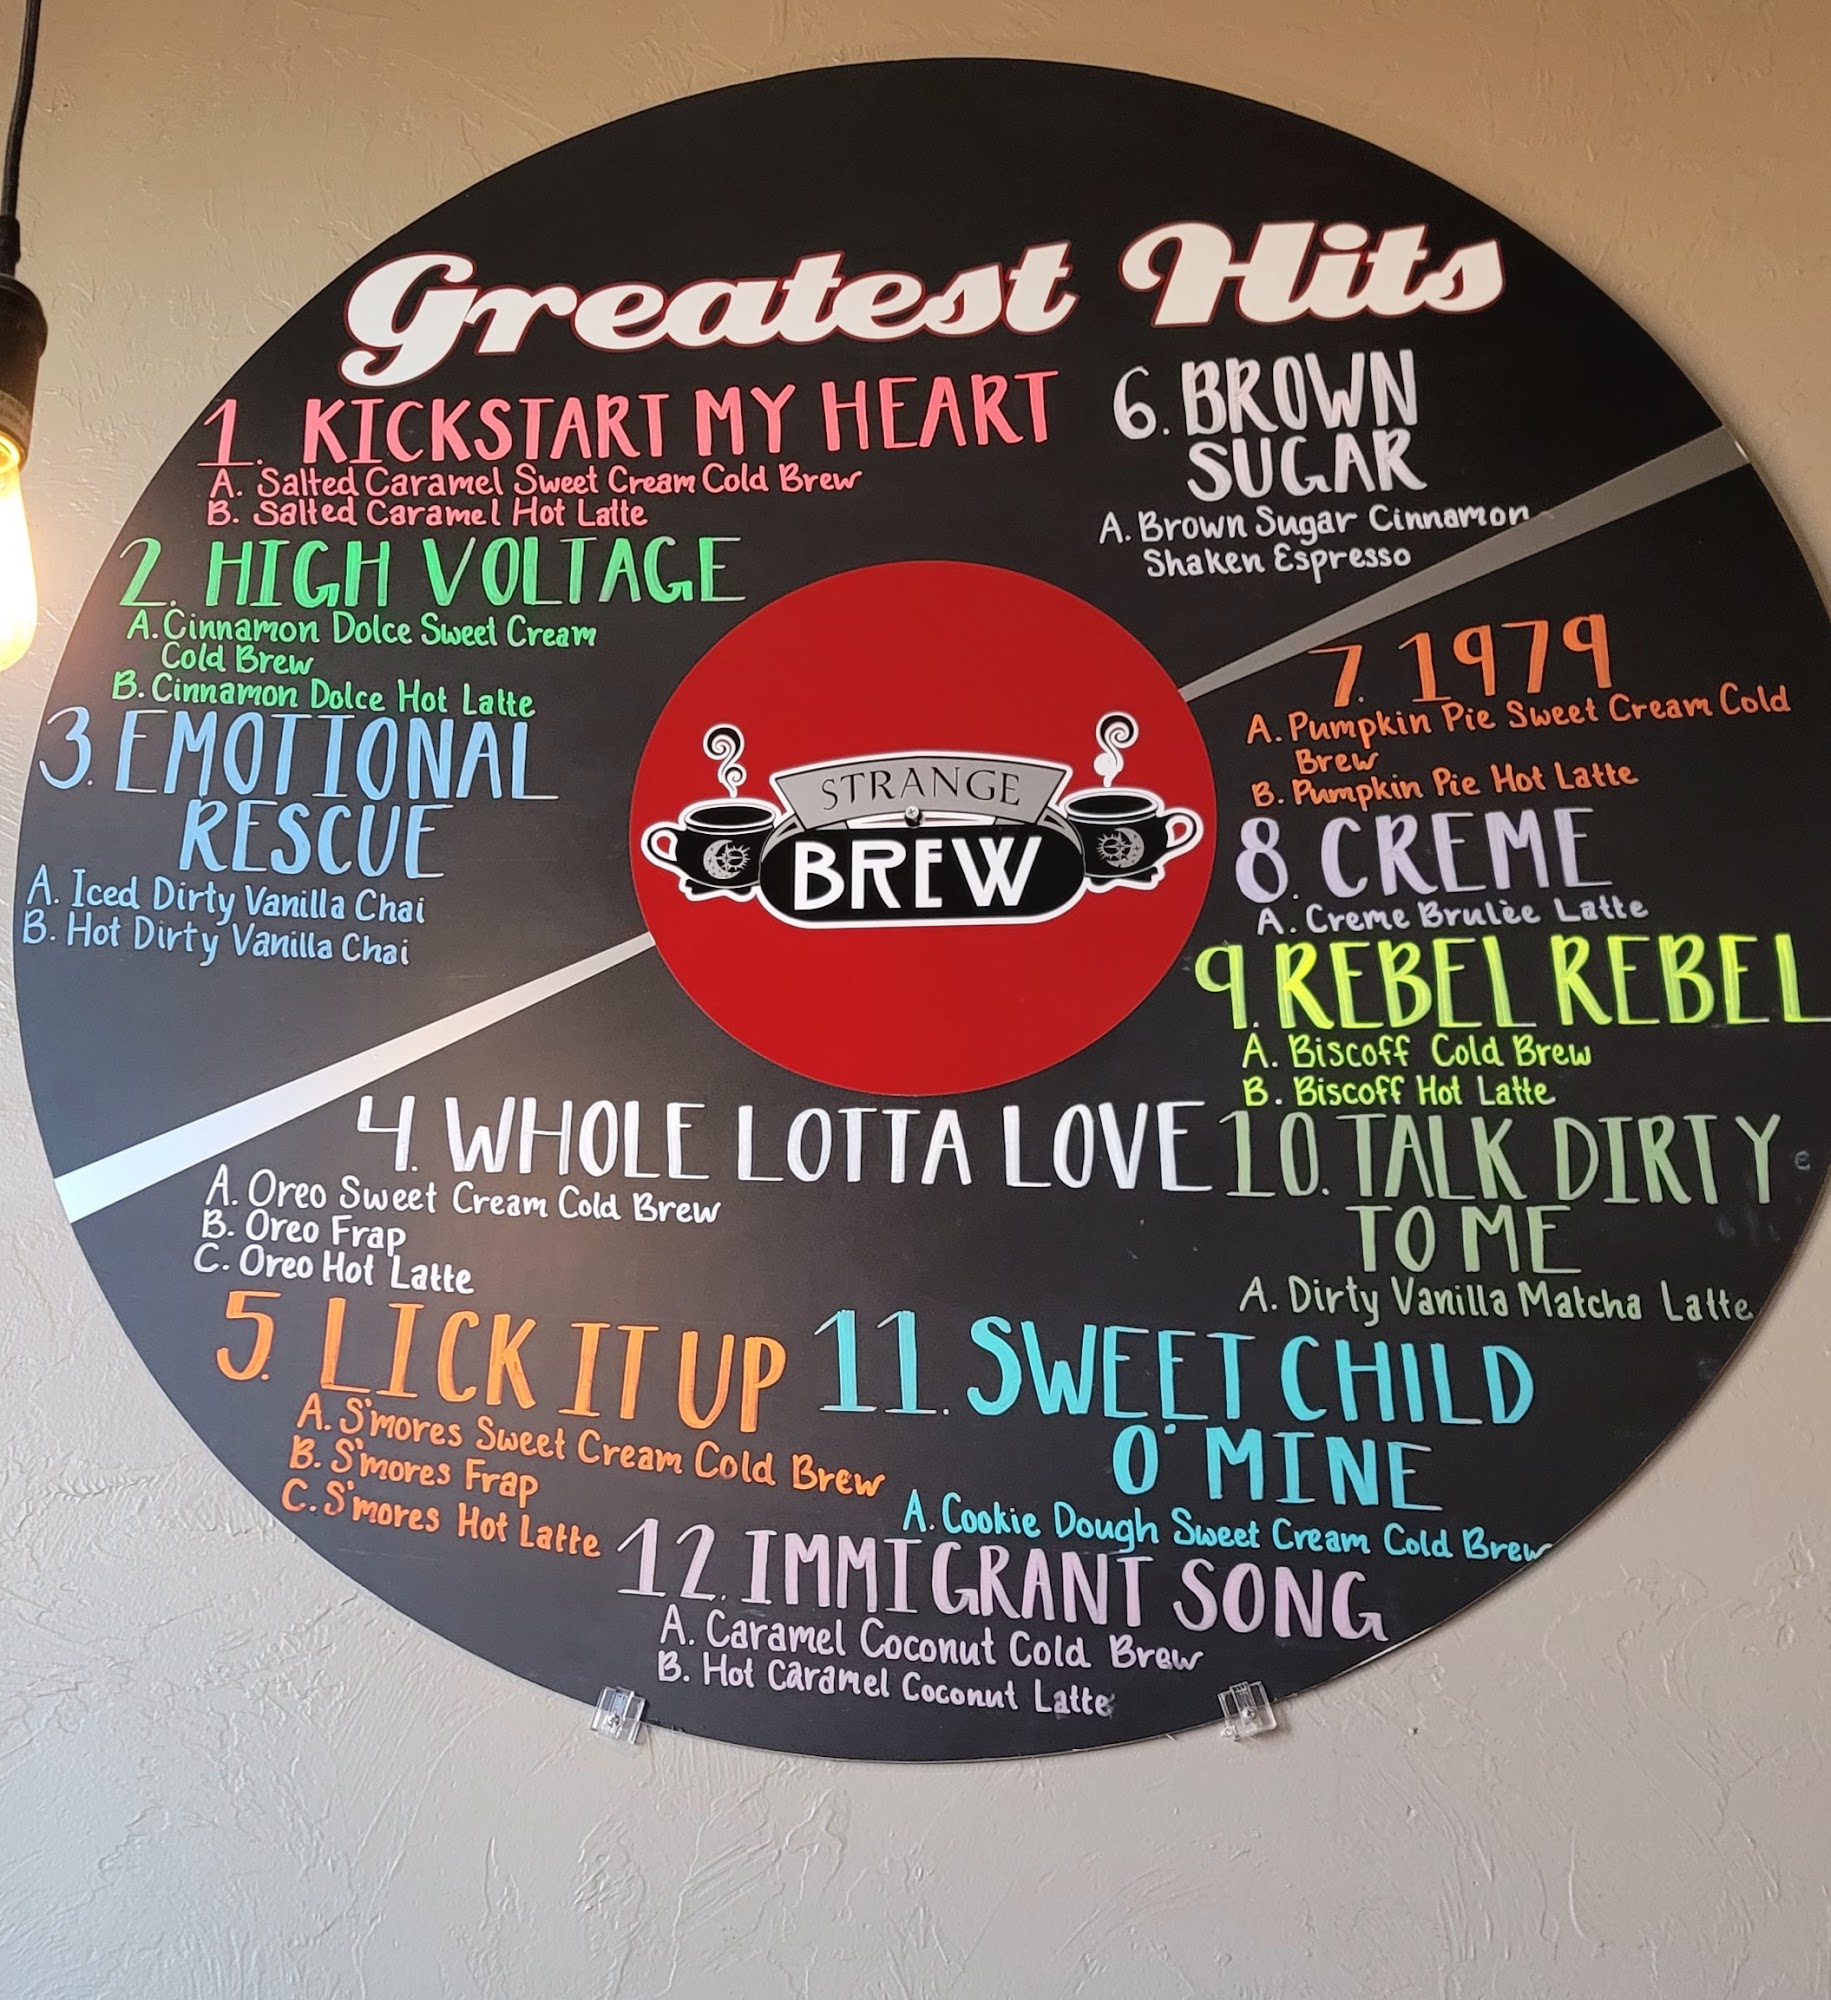 Greatest Hits
1. KICKSTART MY HEART
A. Salted Caramel Sweet Cream Cold Brew
B. Salted Caramel Hot Latte
2. HIGH VOLTAGE
A. Cinnamon Dolce Sweet Cream
Cold Brew
B. Cinnamon Dolce Hot Latte
3. EMOTIONAL
RESCUE
A. Iced Dirty Vanilla Chai
B. Hot Dirty Vanilla Chai
STRANGE
BREW
4. WHOLE LOTTA LOVE
A. Oreo Sweet Cream Cold Brew
B. Oreo Frap
C. Oreo Hot Latte
5. LICK IT UP
A. S'mores Sweet Cream Cold Brew
B. S'mores Frap
C. S'mores Hot Latte
6. BROWN
SUGAR
A. Brown Sugar Cinnamon
Shaken Espresso
7. 1979
A. Pumpkin Pie Sweet Cream Cold
Brew
B. Pumpkin Pie Hot Latte
8. CREME
A. Creme Brulèe Latte
9. REBEL REBEL
A. Biscoff Cold Brew
B. Biscoff Hot Latte
10. TALK DIRTY
TO ME
A. Dirty Vanilla Matcha Latte
11. SWEET CHILD
O' MINE
A. Cookie Dough Sweet Cream Cold Brew
12. IMMIGRANT SONG
A. Caramel Coconut Cold Brew
B. Hot Caramel Coconut Latte